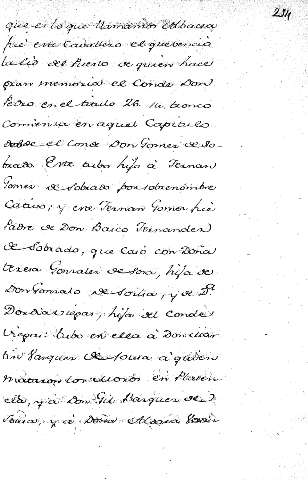 234
que es lo que llamamos Albacea
fue este Cavallero el que vencio
la lid del Rieto de quien hace
gran memoria el Conde Don
Pedro en el titulo 26. su tronco
comienza en aquel Capitulo
el Conde Don Gomez de So-
brado. Este tubo hijo à Fernan
Gomez de Sobrado por sobrenombre
Cativo; y este Fernan Gomez fue
Padre de Don Basco Fernandez
de Sobrado, que casò con Doña
Teresa Gonzalez de Sosa, hija de
Don Gonzalo de Sousa, y de D.ª
hija del Conde
tubo en ella à Don Mar
tin Vazquez de Sousa à quien
mataron los Moros en
y à Don Gil Vazquez de
Sousa, y à Doña Maria